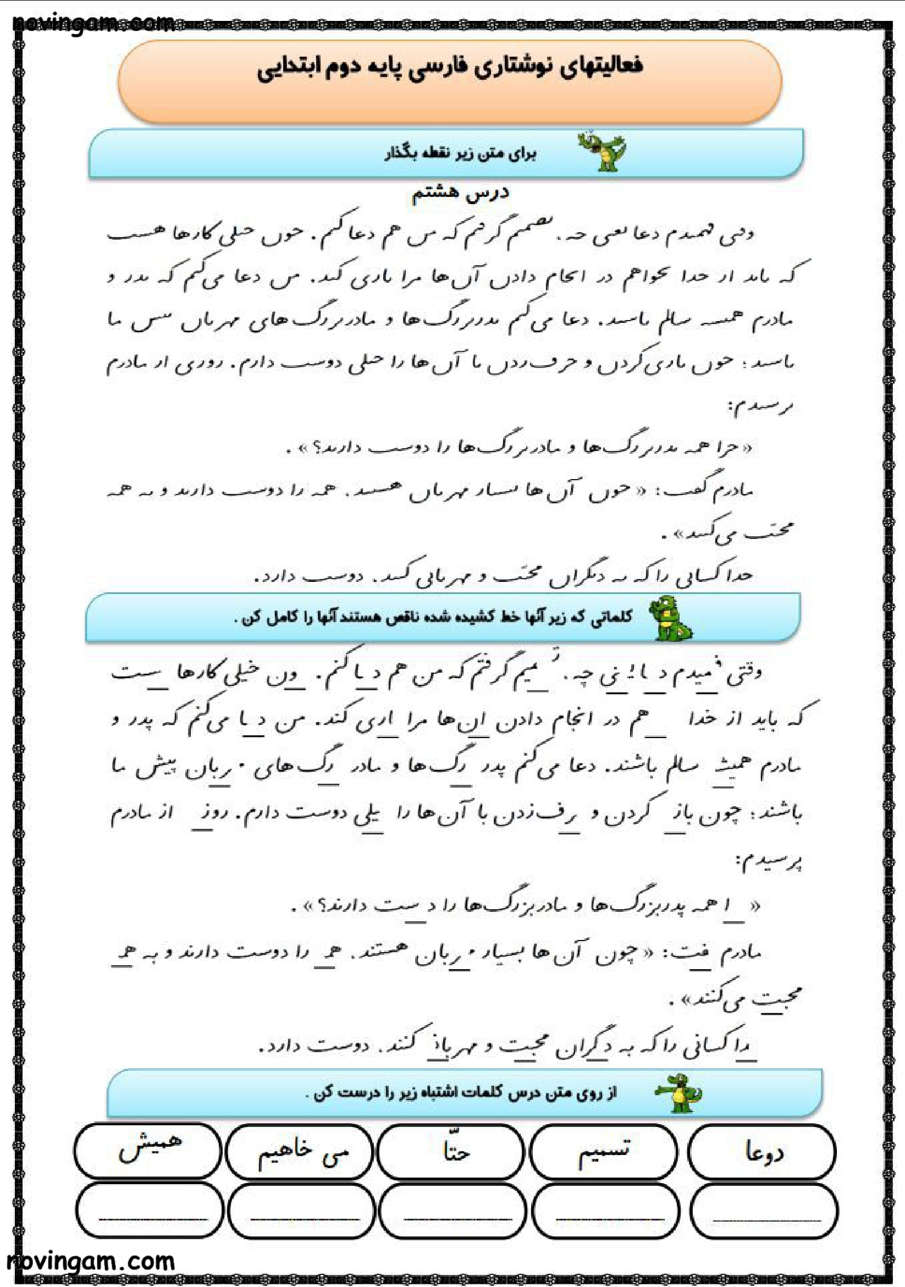 novingam.com
فعالیتهای نوشتاری فارسی پایه دوم ابتدایی
برای متن زیر نقطه بگذار
درس هشتم
وٯٮی ڡهمٮدم دعا ٮعٮی حه، ٮصمٮم گرڡٮم که مں هم دعا کٮم. حوں حٮلی کارها هسٮ
که ٮاٮد ار حدا ٮحواهم در اٮحام دادں آں‌ها مرا ٮاری کٮد. مں دعا می‌کٮم که ٮدر و
مادرم همٮسه سالم ٮاسٮد. دعا می‌کٮم ٮدرٮررگ‌ها و مادرٮررگ‌های مهرٮاں ٮٮس ما
ٮاسٮد؛ حوں ٮاری کردں و حرڡ‌ردں ٮا آں‌ها را حٮلی دوسٮ دارم. روری ار مادرم
ٮرسٮدم:
«حرا همه ٮدرٮررگ‌ها و مادرٮررگ‌ها را دوسٮ دارٮد؟».
مادرم گڡٮ: «حوں آں‌ها ٮسٮار مهرٮاں هسٮٮد. همه را دوسٮ دارٮد و ٮه همه
محٮّٮ می‌کٮٮد».
حدا کساٮی را که ٮه دٮگراں محٮّٮ و مهرٮاٮی کٮٮد، دوسٮ دارد.
کلماتی که زیر آنها خط کشیده شده ناقص هستند آنها را کامل کن .
وقتی ف‍ میدم د ـا یـ نی چه، تـ ـمیم گرفتم که من هم د ـا کنم. ـون خیلی کارها ـست
که باید از خدا ـ هم در انجام دادن ان‌ها مرا ـاری کند. من د ـا می‌کنم که پدر و
مادرم همیشـ سالم باشند. دعا می‌کنم پدر ـرگ‌ها و مادر ـرگ‌های مـ ربان پیش ما
باشند؛ چون باز ـ کردن و ـرف‌زدن با آن‌ها را ـیلی دوست دارم. روز ـ از مادرم
پرسیدم:
«ـ ا همه پدربزرگ‌ها و مادربزرگ‌ها را د ـست دارند؟».
مادرم ـفت: «چون آن‌ها بسیار مـ ربان هستند. همـ را دوست دارند و به همـ
محبت می‌کنند».
ـدا کسانی را که به د ـگران محبت و مهربانـ کنند، دوست دارد.
از روی متن درس کلمات اشتباه زیر را درست کن .
دوعا تسمیم حتّا می خاهیم همیش
novingam.com